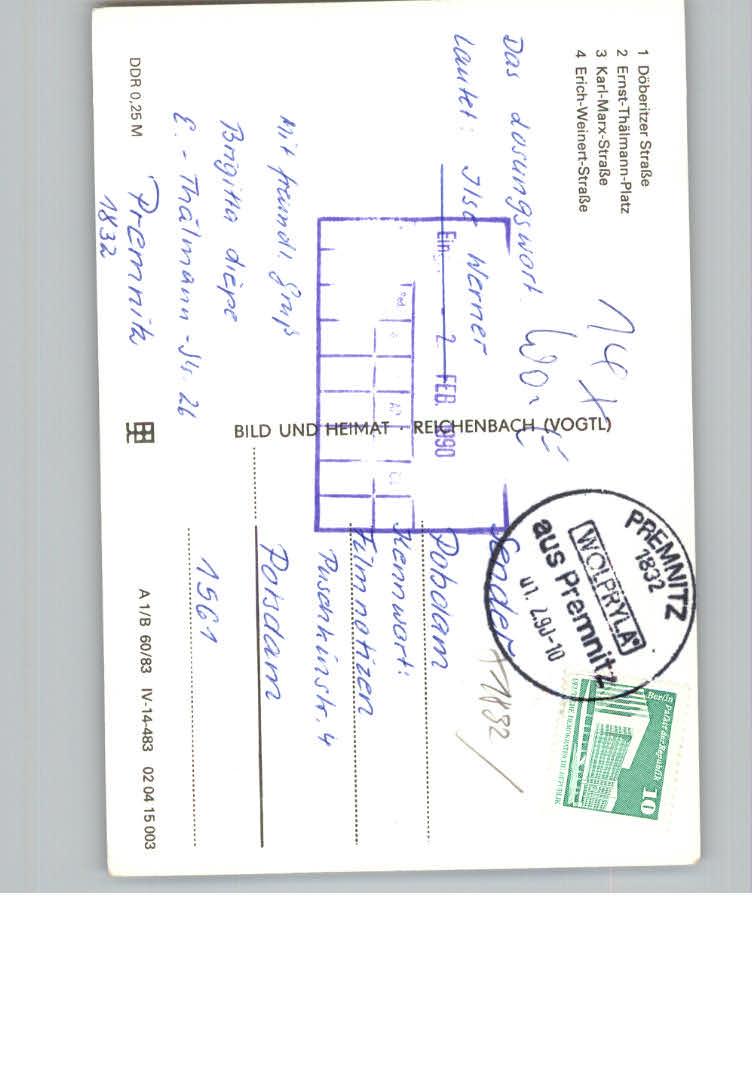 1 Döberitzer Straße
2 Ernst-Thälmann-Platz
3 Karl-Marx-Straße
4 Erich-Weinert-Straße
14 x
Wort
Das Losungswort
lautet: Ilse Werner
Mit freundl. Gruß
Brigitta
E. - Thälmann - Str. 26
Premnitz
1832
DDR 0,25 M
Ein
- 2. FEB. 1990
BILD UND HEIMAT · REICHENBACH (VOGTL)
PREMNITZ
1832
WOLPRYLA
aus Premnitz
01. 2.90-10
Berlin
Palast der Republik
10
Sender
1832
Potsdam
Kennwort:
Filmnotizen
Puschkinstr. 4
Potsdam
1561
A 1/B 60/83 IV-14-483 02 04 15 003